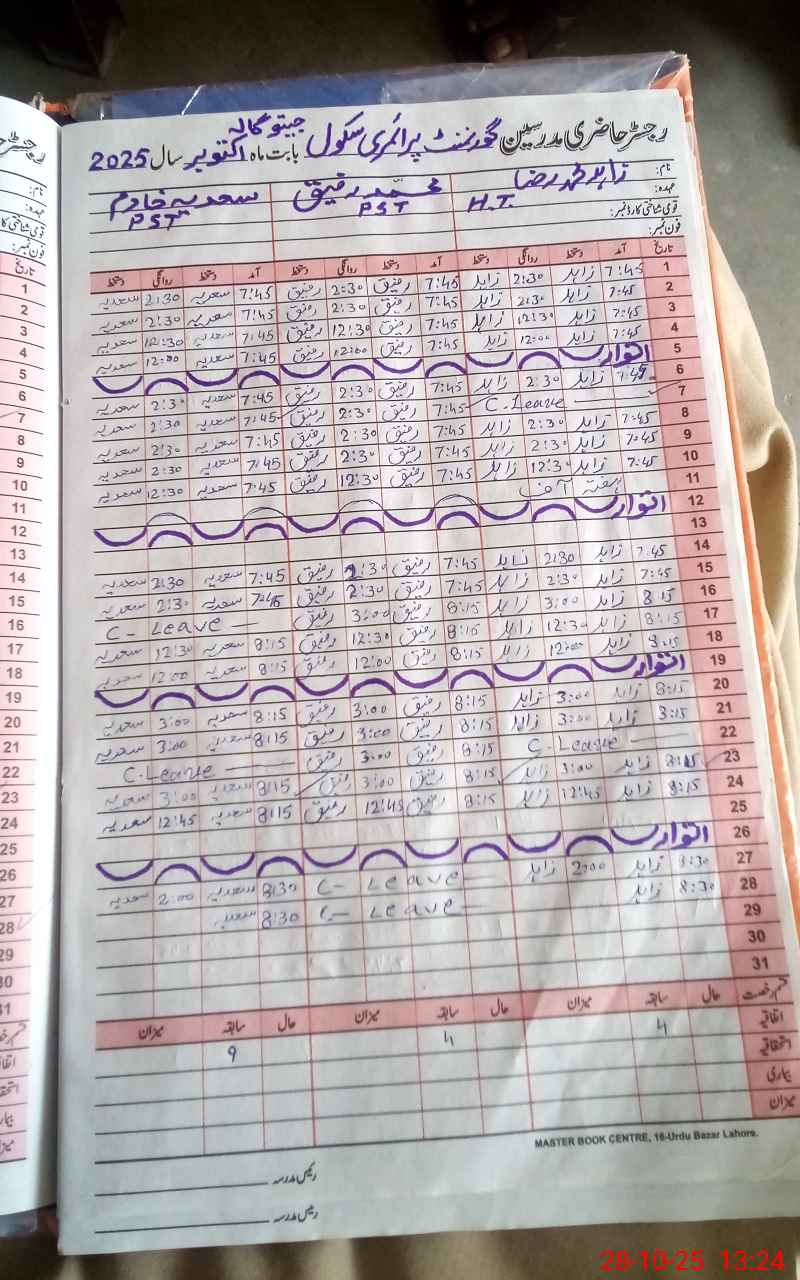 رجسٹر حاضری مدرسین گورنمنٹ پرائمری سکول جیتو گالہ بابت ماہ اکتوبر سال 2025
نام: زاہد محمد رضا محمد رفیق سعدیہ خادم
عہدہ: H.T. PST PST
قومی شناختی کارڈ نمبر:
فون نمبر:
تاریخ آمد دستخط روانگی دستخط آمد دستخط روانگی دستخط آمد دستخط روانگی دستخط
1 7:45 زاہد 2:30 زاہد 7:45 رفیق 2:30 رفیق 7:45 سعدیہ 2:30 سعدیہ
2 7:45 زاہد 2:30 زاہد 7:45 رفیق 2:30 رفیق 7:45 سعدیہ 2:30 سعدیہ
3 7:45 زاہد 12:30 زاہد 7:45 رفیق 12:30 رفیق 7:45 سعدیہ 12:30 سعدیہ
4 7:45 زاہد 12:00 زاہد 7:45 رفیق 12:00 رفیق 7:45 سعدیہ 12:00 سعدیہ
5 اتوار
6 7:45 زاہد 2:30 زاہد 7:45 رفیق 2:30 رفیق 7:45 سعدیہ 2:30 سعدیہ
7 C. Leave 7:45 رفیق 2:30 رفیق 7:45 سعدیہ 2:30 سعدیہ
8 7:45 زاہد 2:30 زاہد 7:45 رفیق 2:30 رفیق 7:45 سعدیہ 2:30 سعدیہ
9 7:45 زاہد 2:30 زاہد 7:45 رفیق 2:30 رفیق 7:45 سعدیہ 2:30 سعدیہ
10 7:45 زاہد 12:30 زاہد 7:45 رفیق 12:30 رفیق 7:45 سعدیہ 12:30 سعدیہ
11 ہفتہ آف
12 اتوار
13
14 7:45 زاہد 2:30 زاہد 7:45 رفیق 2:30 رفیق 7:45 سعدیہ 2:30 سعدیہ
15 7:45 زاہد 2:30 زاہد 7:45 رفیق 2:30 رفیق 7:45 سعدیہ 2:30 سعدیہ
16 8:15 زاہد 3:00 زاہد 8:15 رفیق 3:00 رفیق C- Leave -
17 8:15 زاہد 12:30 زاہد 8:15 رفیق 12:30 رفیق 8:15 سعدیہ 12:30 سعدیہ
18 8:15 زاہد 12:00 زاہد 8:15 رفیق 12:00 رفیق 8:15 سعدیہ 12:00 سعدیہ
19 اتوار
20 8:15 زاہد 3:00 زاہد 8:15 رفیق 3:00 رفیق 8:15 سعدیہ 3:00 سعدیہ
21 8:15 زاہد 3:00 زاہد 8:15 رفیق 3:00 رفیق 8:15 سعدیہ 3:00 سعدیہ
22 C-Leave 8:15 رفیق 3:00 رفیق C.Leave
23 8:15 زاہد 3:00 زاہد 8:15 رفیق 3:00 رفیق 8:15 سعدیہ 3:00 سعدیہ
24 8:15 زاہد 12:45 زاہد 8:15 رفیق 12:45 رفیق 8:15 سعدیہ 12:45 سعدیہ
25
26 اتوار
27 8:30 زاہد 2:00 زاہد C- Leave - 8:30 سعدیہ 2:00 سعدیہ
28 8:30 زاہد C- Leave - 8:30 سعدیہ
29
30
31
قسم رخصت حال سابقہ میزان حال سابقہ میزان حال سابقہ میزان
اتفاقیہ 4 4 9
استحقاقیہ
بیماری
میزان
MASTER BOOK CENTRE, 16-Urdu Bazar Lahore.
رئیس مدرسہ
رئیس مدرسہ
28-10-25 13:24